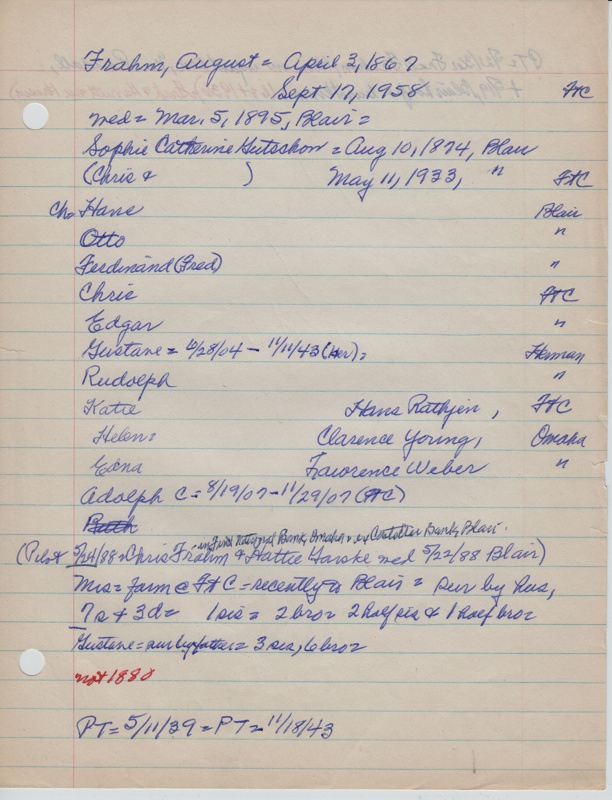 Frahm, August = April 3, 1867
Sept 17, 1958 FtC
med = Mar. 5, 1895, Blair =
Sophie Catherine Gutschow = Aug 10, 1874, Blair
(Chris & ) May 11, 1933, " FtC
Ch = Hans Blair
Otto "
Ferdinand (Fred) "
Chris FtC
Edgar "
Gustave = 10/28/04 - 11/11/43 (Her) = Herman
Rudolph "
Katie Hans Rathjen, FtC
Helen = Clarence Young, Omaha
Edna Lawrence Weber "
Adolph C = 8/19/07 - 11/29/07 (FtC)
Ruth
in First National Bank, Omaha & ex Blair.
(Pilot 5/24/88 = Chris Frahm & Hattie med 5/22/88 Blair)
Mrs = farm @ FtC = recently to Blair = sur by hus,
7 s & 3 d = 1 sis = 2 bro = 2 half sis & 1 half bro =
Gustave = sur by father = 3 sis, 6 bro =
not 1880
PT = 5/11/39 = PT = 11/18/43